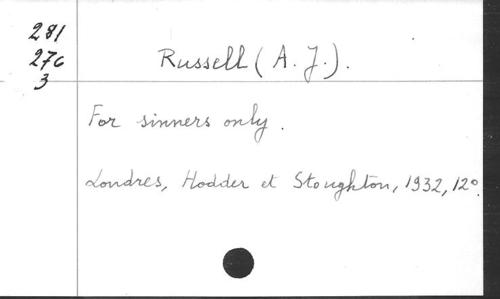 281
276
3
Russell (A. J.).
For sinners only.
Londres, Hodder et Stoughton, 1932, 12º.